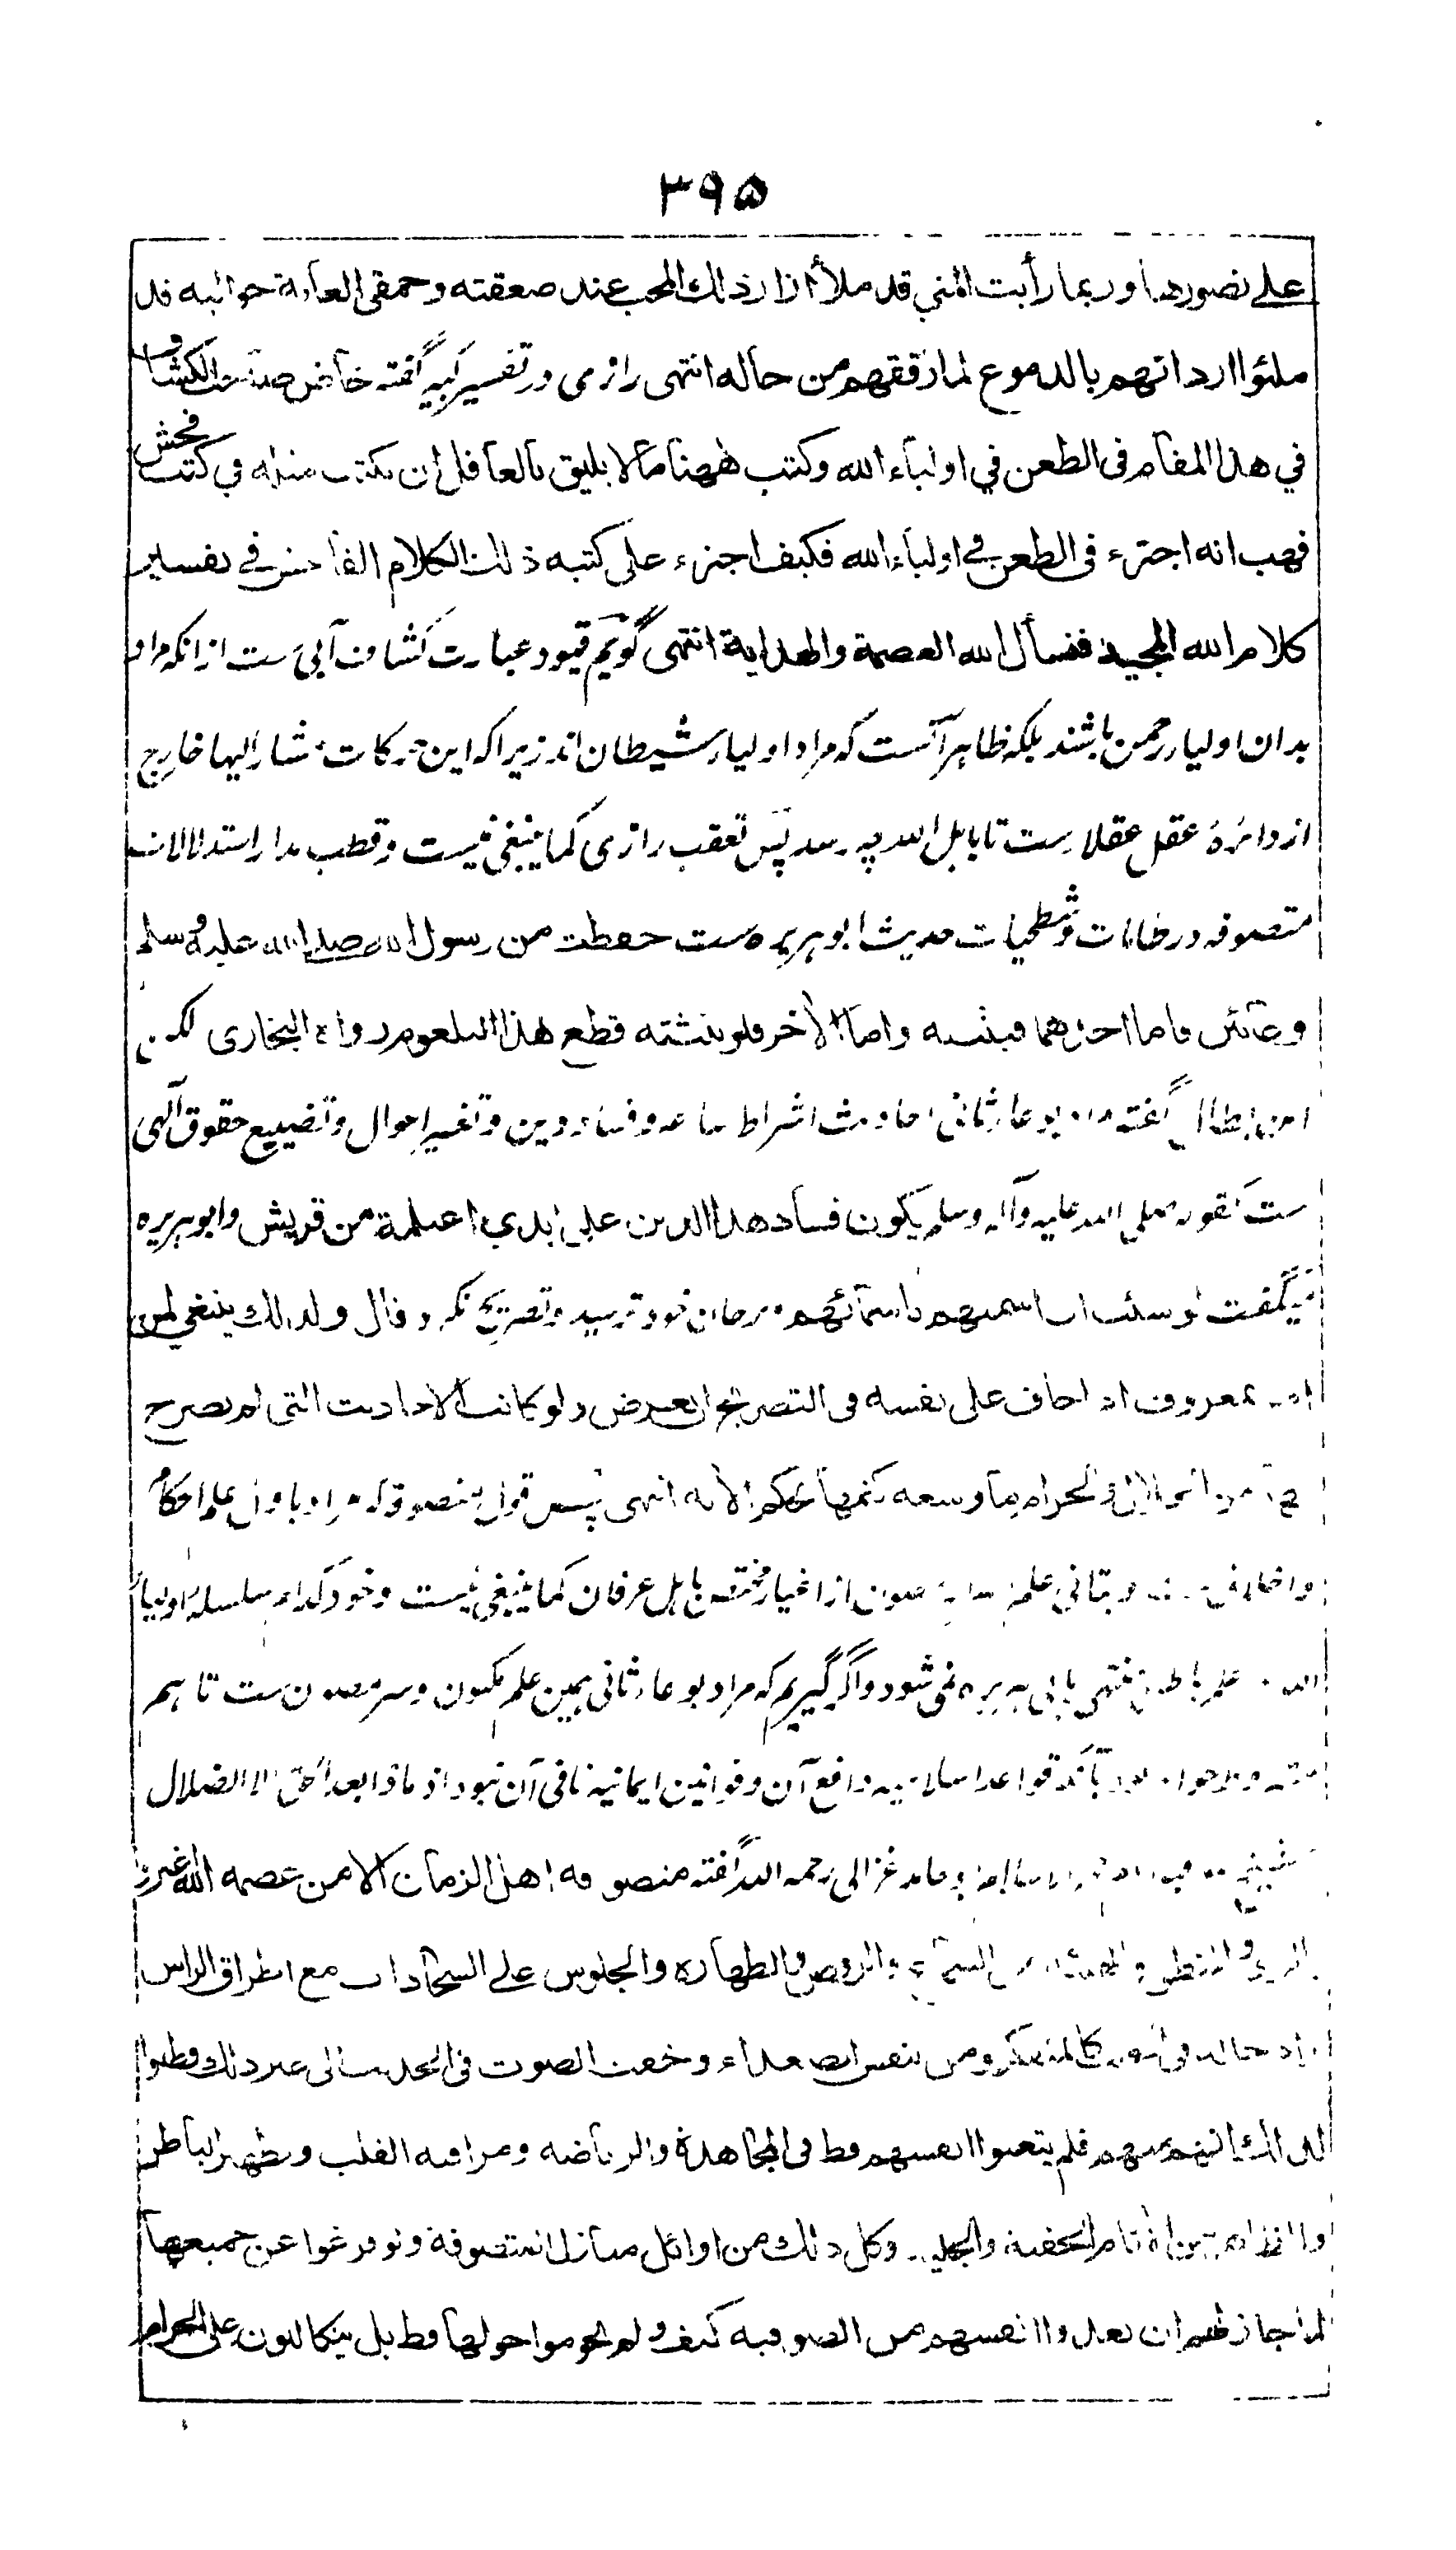 ٣٩٥
على تصورها وربما رأيت المني قد ملأ ازار ذلك المحب عند صعقته وحمقى العامة حواليه قد
ملئوا اردانهم بالدموع لما رققهم من حاله انتهى رازى در تفسير كبير گفته خاض صاحب الكشاف
في هذا المقام فى الطعن في اولياء الله وكتب ههنا ما لا يليق بالعاقل ان يكتب مثله في كتب فحش
فهب انه اجترء فى الطعن في اولياء الله فكيف اجترء على كتبه ذلك الكلام الفاحش في تفسير
كلام الله المجيد فنسأل الله العصمة والهداية انتهى گويم قيود عبارت كشاف آبى ست ازانكه مراد
بدان اولياء رحمن باشند بلكه ظاهر آنست كه مراد اولياء شيطان اند زيراكه اين حركات مشار اليها خارج
از دائرهٔ عقل عقلاست تا باهل الله چه رسد پس تعقب رازى كما ينبغى نيست وقطب مدار استدلالات
متصوفه در طامات وشطحيات حديث ابو هريره ست حفظت من رسول الله صلى الله عليه وسلم
وعائين فاما احدهما فبثثته واما الآخر فلو بثثته قطع هذا البلعوم رواه البخارى لكن
گفته مراد بوعاء ثانى احاديث اشراط ساعه وفساد دين وتغيير احوال وتضييع حقوق آلهى
ست كقوله صلى الله عليه وآله وسلم يكون فساد هذا الدين على ايدي اغيلمة من قريش وابو هريره
ميگفت لو شئت ان اسميهم باسمائهم وبر جان خود ترسيد وتصريح نكرد قال ولذلك ينبغي لمن
بمعروف اذا خاف على نفسه فى التصريح ان يعرض ولو كانت الاحاديث التى لم يصرح
من الحلال والحرام ما وسعه كتمها بحكم الآية انتهى پس قول متصوفه كه مراد باول علم احكام
واخلاق ست وبثانى علم مصون از اغيار مختص باهل عرفان كما ينبغى نيست وخود كدام سلسلهٔ اولياء
الله علم باطن منتهى بابى هريره نمى شود واگر گيريم كه مراد بوعاء ثانى همين علم مكنون وسر مصون ست تا هم
بايد كه قواعد اسلاميه دافع آن وقوانين ايمانيه نافى آن نبود اذ ماذا بعد الحق الا الضلال
ابو حامد غزالى رحمه الله گفته متصوفه اهل الزمان الا من عصمه الله غيرنا
بالزى والمنطق والهيئة من السماع والرقص والطهارة والجلوس على السجادات مع اطراق الراس
كالمتفكر ومن تنفس الصعداء وخفض الصوت فى الحديث الى غير ذلك فظنوا
لذلك انهم منهم فلم يتعبوا انفسهم قط فى المجاهدة والرياضة ومراقبة القلب وتطهير الباطن
من الآثام الخفية والجلية وكل ذلك من اوائل منازل المتصوفة ولو فرغوا عن جميعها
لما جاز لهم ان يعدوا انفسهم من الصوفية كيف ولم يحوموا حولها قط بل يتكالبون على الحرام